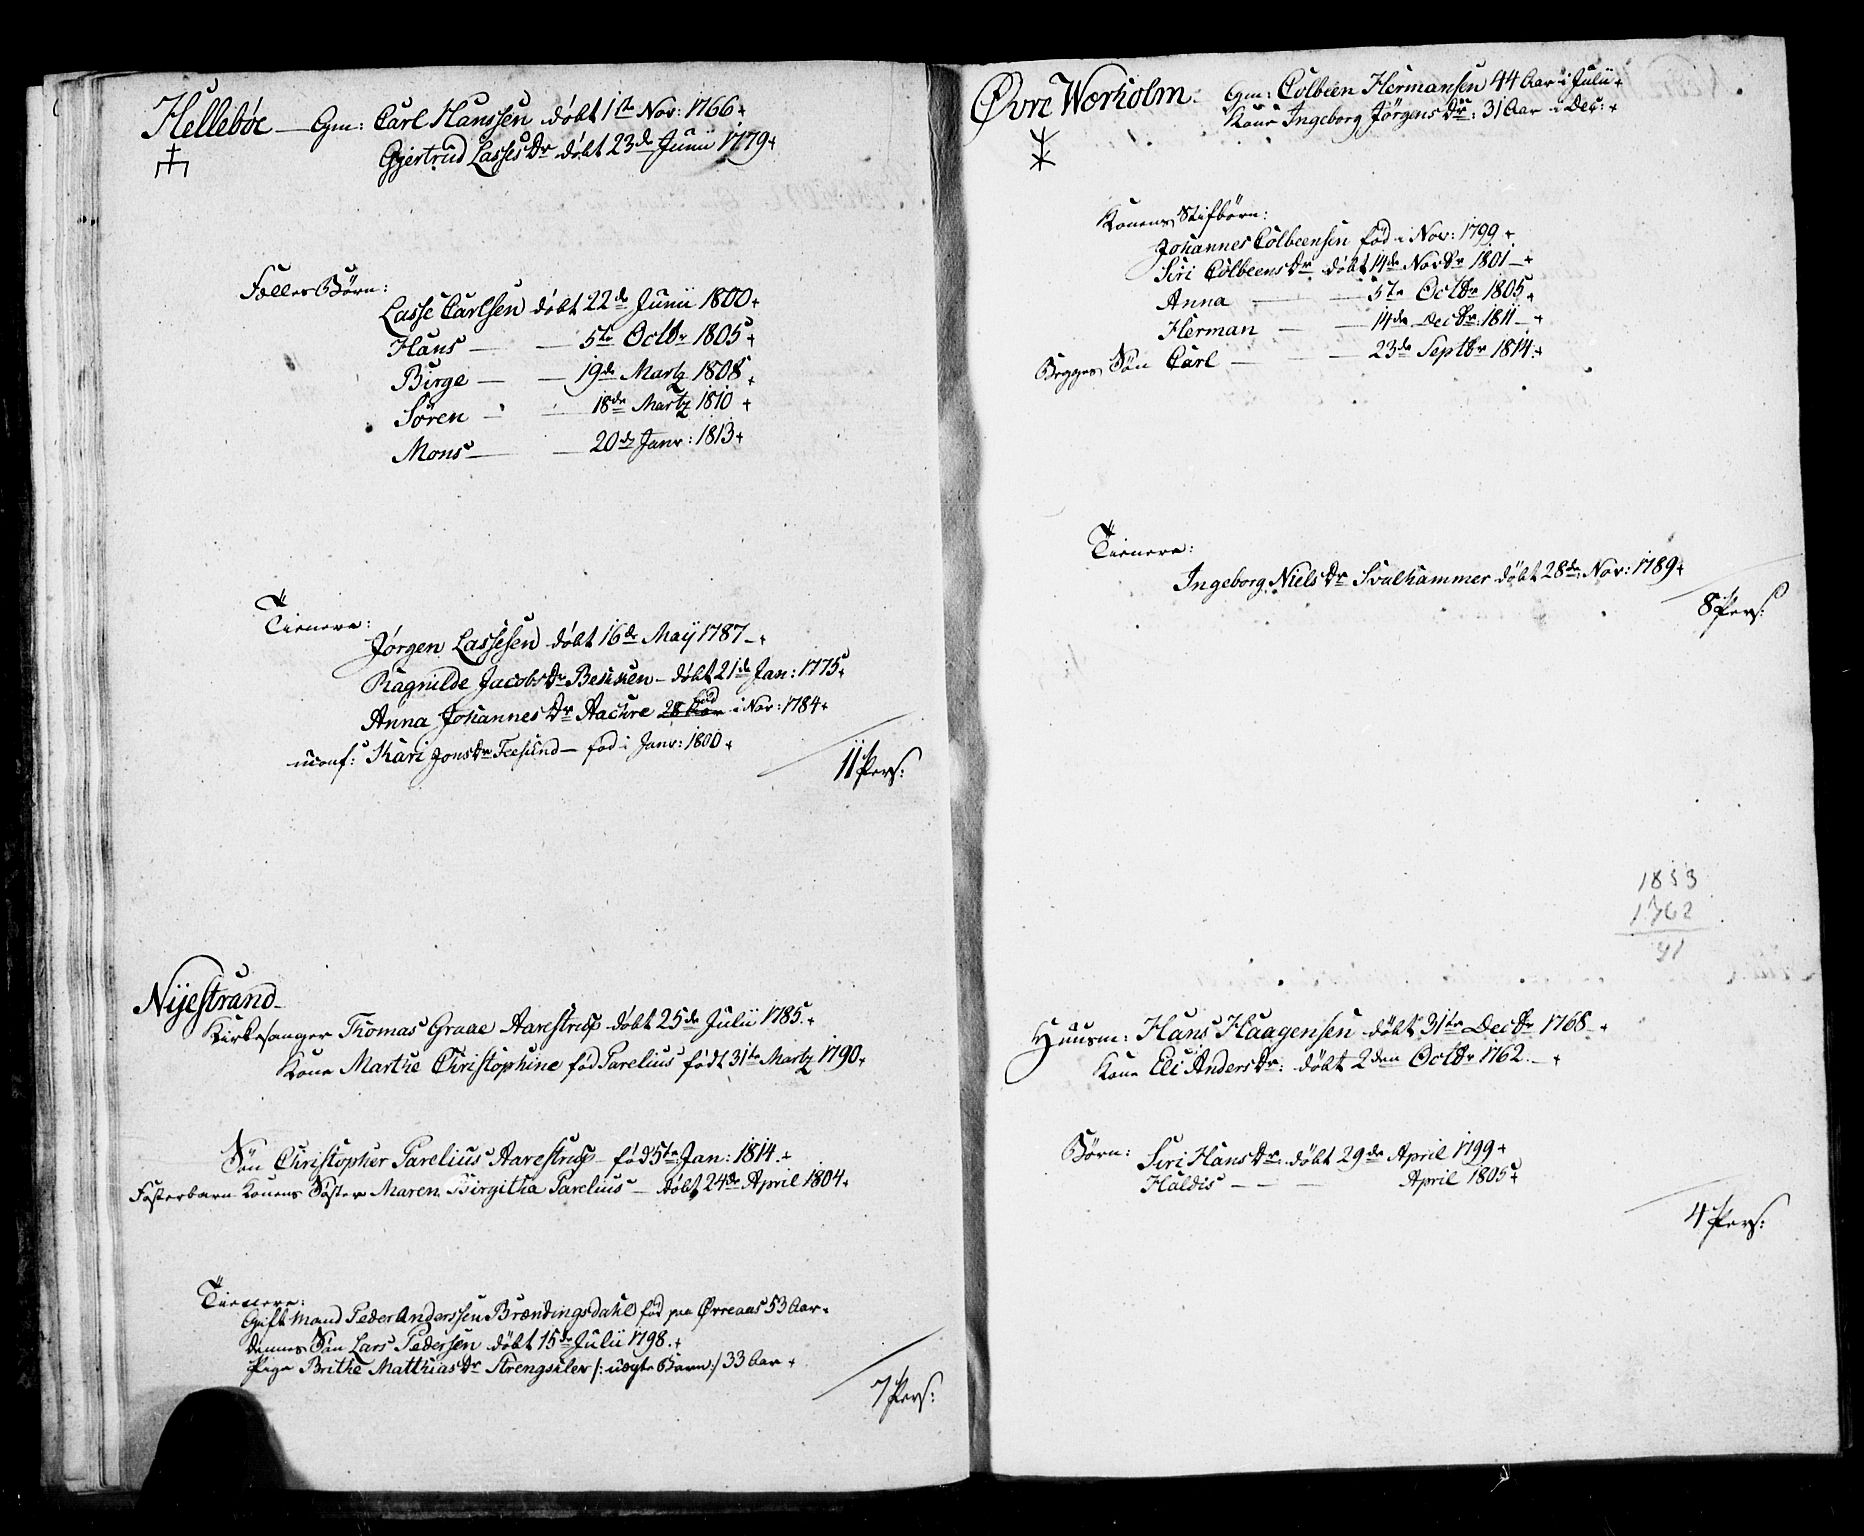 Hellebøe — Gm: Carl Hanssen døbt 1ste Nov: 1766
Gjertrud Lasses Dr døbt 23de Junii 1779
Fælles Børn:
Lasse Carlsen døbt 22de Junii 1800
Hans — — 5te Octbr 1805
Birge — — 19de Martz 1808
Søren — — 18de Martz 1810
Mons — — 20de Janr: 1813
Tienere:
Jørgen Lassesen døbt 16de Maÿ 1787
Ragnilde Jacobs Dr — døbt 21de Jan: 1775
Anna Johannes Dr Aachre 28 Aar fød i Nov: 1784
uconf: Kari Jons Dr Teesund — fød i Janr: 1800
11 Pers:
Nÿestrand
Kirkesanger Thomas Graae Aarestrup døbt 25de Julii 1785
Kone Marthe Christophine fød Parelius født 31te Martz 1790
Søn Christopher Parelius Aarestrup — fød 5te Jan: 1814
Fosterbarn Konens Søster Maren Birgitha Parelius — døbt 24de April 1804
Tienere:
Gift Mand Peder Anderssen Brændingsdahl fød paa Ørreaas 53 Aar
dennes Søn Lars Pedersen døbt 15de Julii 1798
Pige Brithe Matthias Dr Strengselev /: uægte Barn :/ 33 Aar
7 Pers:
Øvre Wærholm. Gm: Colbeen Hermansen 44 Aar i Julii
Kone Ingeborg Jørgens Dr: 31 Aar i Dec:
Konens Stifbørn:
Johannes Colbeensen fød i Nov: 1799
Siri Colbeens Dr døbt 14de Novbr 1801
Anna — — 5te Octbr 1805
Herman — — 14de Decbr 1811
Begges Søn Carl — — 23de Septbr 1814
Tienere:
Ingeborg Niels Dr Svalhammer døbt 28de Nov: 1789
8 Pers:
1853
1762
91
Huusm: Hans Haagensen døbt 31te Decbr 1768
Kone Eli Anders Dr: døbt 2den Octbr 1762
Børn: Siri Hans Dr: døbt 29de April 1799
Haldis — — April 1805
4 Pers: